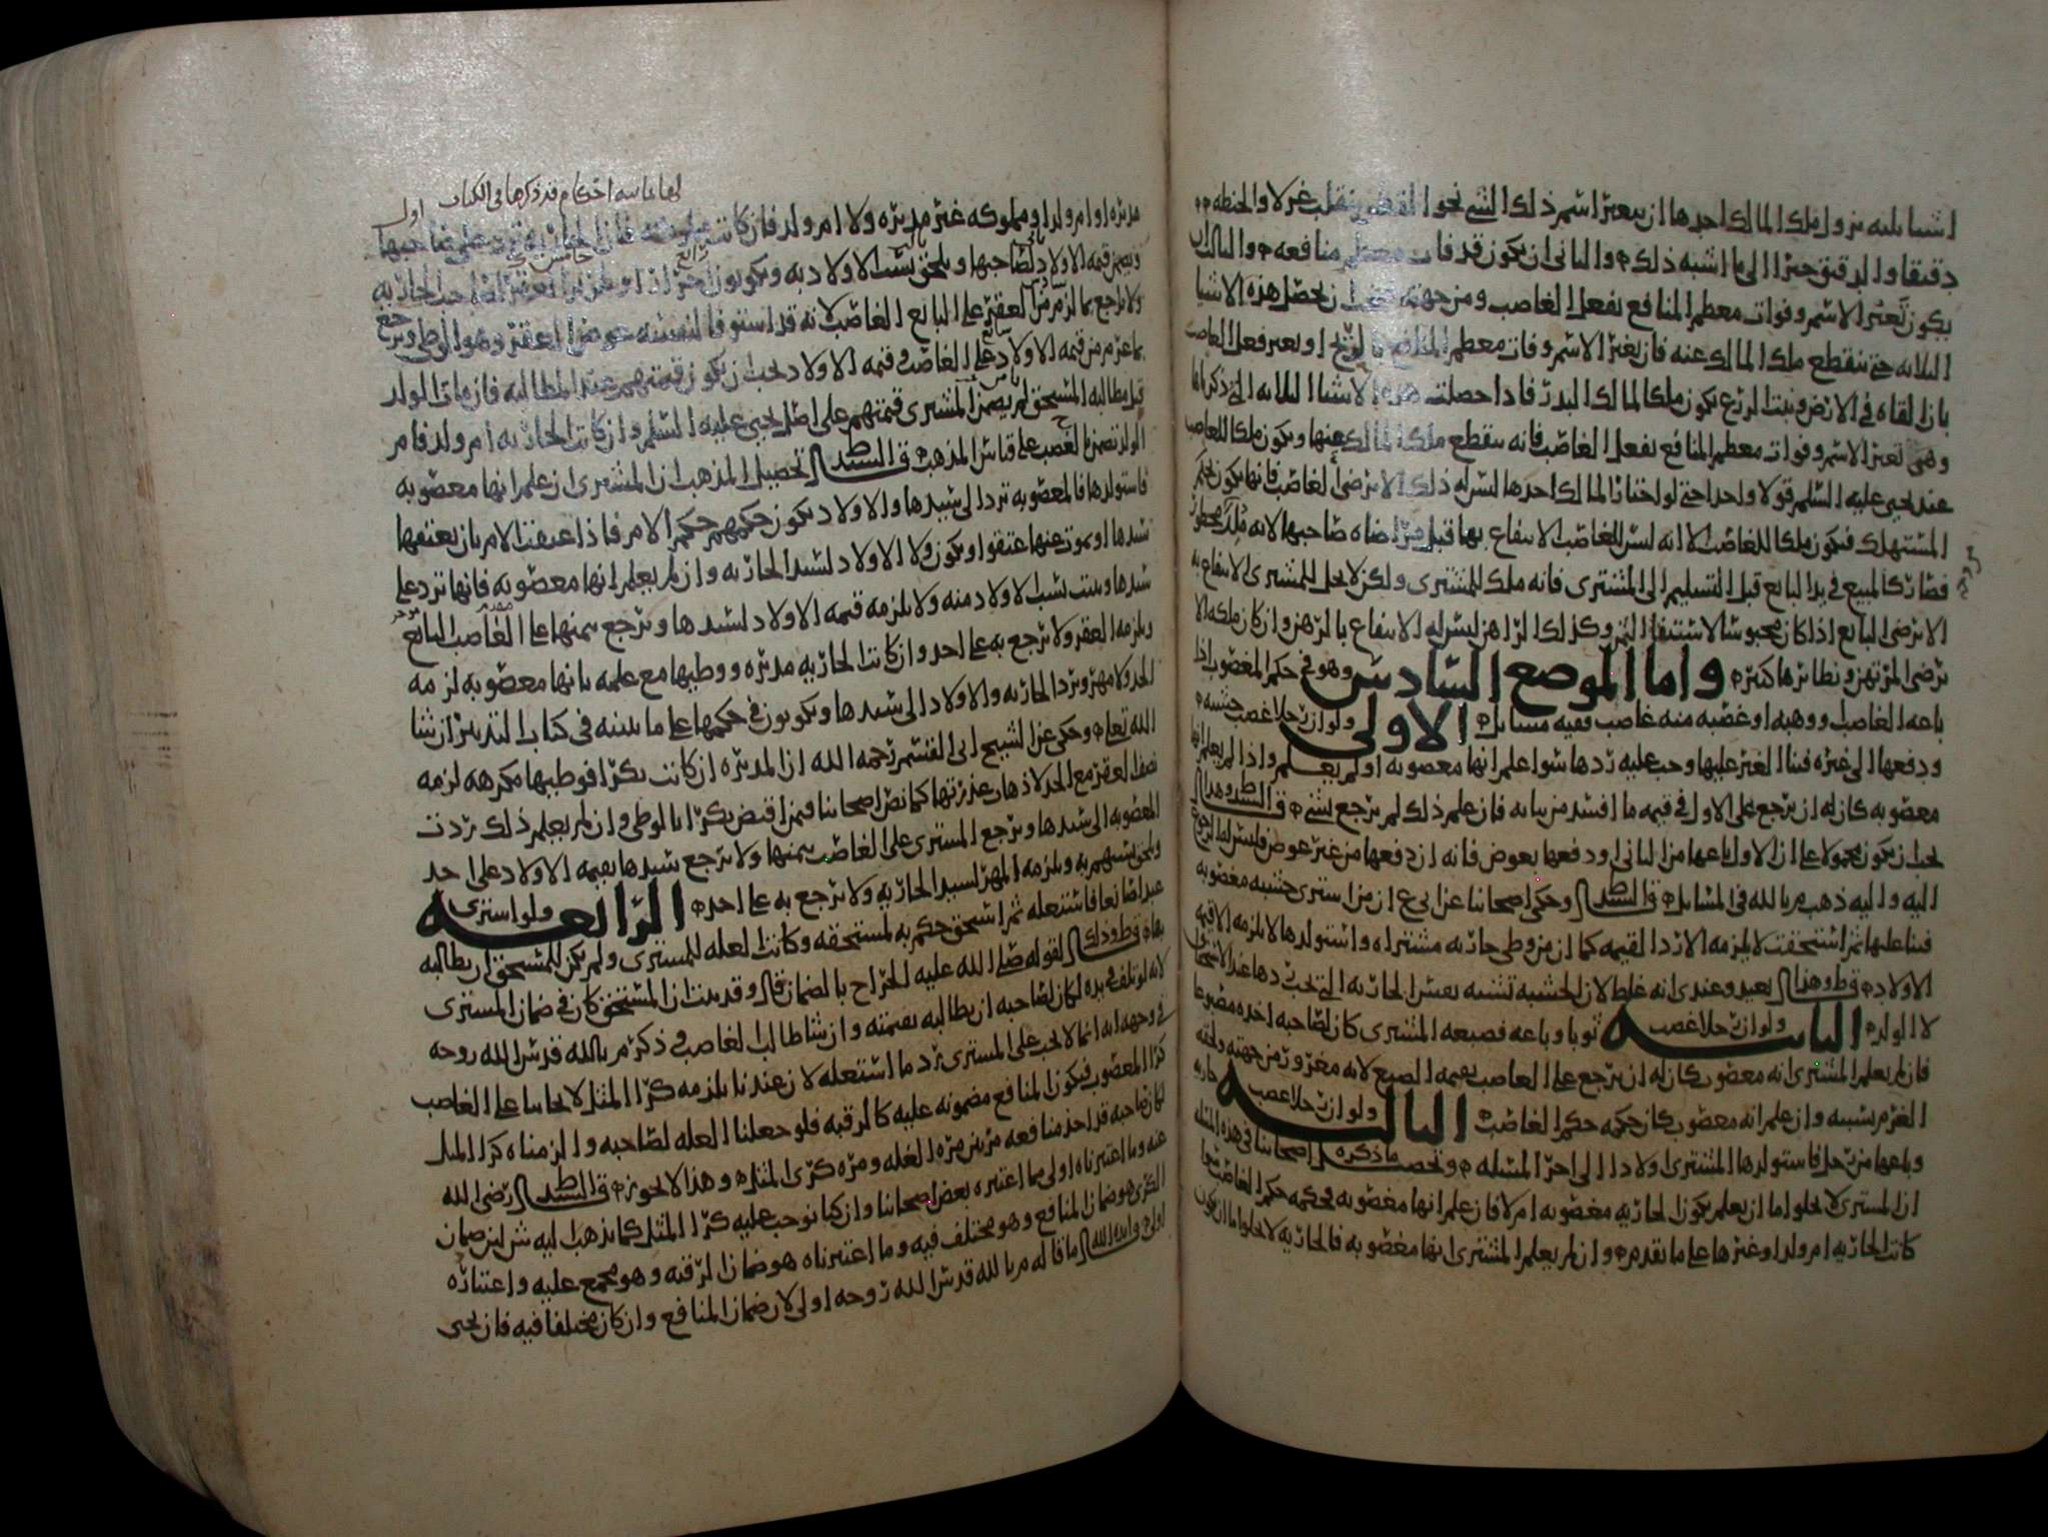 اشيا ثلثه يزول ملك المالك احدها ان يتغير اسم ذلك الشي نحو القطن ينقلب غزلا والحنطه
دقيقا والدقيق خبزا الى ما اشبه ذلك والثاني ان يكون قد فات معظم منافعه والثالث ان
يكون تغير الاسم وفوات معظم المنافع بفعل الغاصب ومن جهته فتحصل هذه الاشيا
الثلاثه حتى ينقطع ملك المالك عنه فان تغير الاسم وفات معظم المنافع لا او بغير فعل الغاصب
بان القاه في الارض ونبت الزرع يكون ملكا لمالك البذر فاذا حصلت هذه الاشيا الثلاثه التي ذكرناها
وهي تغير الاسم وفوات معظم المنافع بفعل الغاصب فانه ينقطع ملك المالك عنها ويكون ملكا للغاصب
عند يحيى عليه السلم قولا واحدا حتى لو اختار المالك احدها ليس له ذلك الا برضى الغاصب فانها يكون بحكم
المستهلك فيكون ملكا للغاصب الا انه ليس للغاصب الانتفاع بها قبل مراضاه صاحبها لانه ملك محظور
فصار كالمبيع في يد البايع قبل التسليم الى المشتري فانه ملك للمشتري ولكن لا يحل للمشتري الانتفاع به
الا برضى البايع اذا كان محبوسا لاستيفا الثمن وكذلك الراهن ليس له الانتفاع بالرهن وان كان ملكه الا
برضى المرتهن ونظائرها كثيره واما الموضع السادس وهو في حكم المغصوب اذا
باعه الغاصب ووهبه او غصبه منه غاصب ففيه مسايل الاولى ولو ان رجلا غصب خشبه
ودفعها الى غيره فبنا الغير عليها وجب عليه ردها سوا علم انها مغصوبه او لم يعلم واذا لم يعلم انها
مغصوبه كان له ان يرجع على الاول في قيمه ما افسد من بنائه فان علم ذلك لم يرجع بشي قال السيد ط وهذا
يجب ان يكون محمولا على ان الاول باعها من الثاني او دفعها بعوض فانه ان دفعها من غير عوض فليس له الرجوع
اليه واليه ذهب م بالله في المسايل قال السيد ط وحكى اصحابنا عن ابي ع ان من اشترى خشبه مغصوبه
فبنا عليها ثم استحقت لا يلزمه الا رد القيمه كما ان من وطي جاريه مشتراه واستولدها لا يلزمه الا قيمه
الاولاد قال ط وهذا بعيد وعندي انه غلط لان الخشبه تشبه بعين الجاريه التي يجب ردها عند الاستحقاق
لا الولد الثانيه ولو ان رجلا غصب ثوبا وباعه فصبغه المشتري كان لصاحبه اخذه مصبوغا
فان لم يعلم المشتري انه مغصوب كان له ان يرجع على الغاصب بقيمه الصبغ لانه مغرور من جهته ولحقه
الغرم بسببه وان علم انه مغصوب كان حكمه حكم الغاصب الثالثه ولو ان رجلا غصب جاريه
وباعها من رجل فاستولدها المشتري اولادا الى اخر المسئله وتحصيل ما ذكره اصحابنا في هذه المسئله
ان المشتري لا يخلو اما ان يعلم بكون الجاريه مغصوبه ام لا فان علم انها مغصوبه فحكمه حكم الغاصب سوا
كانت الجاريه ام ولد او غيرها على ما تقدم وان لم يعلم المشتري انها مغصوبه فالجاريه لا يخلو اما ان يكون
لها ثمانيه احكام قد ذكرها في الكتاب اول
مدبره او ام ولد او مملوكه غير مدبره ولا ام ولد فان كانت مملوكه فان الجاريه ترد على صاحبها
ويضمن قيمه الاولاد لصاحبها ويلحق نسب الاولاد به ويكونون احرارا ويلزمه العقر لصاحب الجاريه
ولا يرجع بما لزم من العقر على البايع الغاصب لانه قد استوفا لنفسه عوض العقر وهو الوطي ويرجع
بما غرم من قيمه الاولاد على الغاصب وقيمه الاولاد يجب ان يكون قيمتهم عند المطالبه فان مات الولد
قبل مطالبه المستحق لم يضمن المشتري قيمتهم على اصل يحيى عليه السلم وان كانت الجاريه ام ولد فام
الولد تضمن بالغصب على قياس المذهب قال السيد ط تحصيل المذهب ان المشتري ان علم انها مغصوبه
فاستولدها فالمغصوبه ترد الى سيدها والاولاد يكون حكمهم حكم الام فاذا عتقت الام بان يعتقها
سيدها او يموت عنها عتقوا ويكون ولا الاولاد لسيد الجاريه وان لم يعلم انها مغصوبه فانها ترد على
سيدها ويثبت نسب الاولاد منه ولا يلزمه قيمه الاولاد لسيدها ويرجع بثمنها على الغاصب البايع
ويلزمه العقر ولا يرجع به على احد وان كانت الجاريه مدبره ووطيها مع علمه بانها مغصوبه لزمه
الحد ولا مهر ويرد الجاريه والاولاد الى سيدها ويكونون في حكمها على ما نبينه في كتاب التدبير ان شا
الله تعلى وحكى عن الشيخ ابي القسم رحمه الله ان المدبره ان كانت بكرا فوطيها مكرهه لزمه
نصف العقر مع الحد لاذهاب عذرتها كما نص اصحابنا فيمن اقتض بكرا بالوطي وان لم يعلم ذلك ردت
المغصوبه الى سيدها ويرجع المشتري على الغاصب بثمنها ولا يرجع سيدها بقيمه الاولاد على احد
ويلحق نسبهم به ويلزمه المهر لسيد الجاريه ولا يرجع به على احد الرابعه ولو اشترى
عبدا صانعا فاستغله ثم استحق حكم به لمستحقه وكانت الغله للمشتري ولم يكن للمستحق ان يطالبه
بها قال ط وذلك لقوله صلى الله عليه الخراج بالضمان قال وقد ثبت ان المستحق كان في ضمان المشتري
لانه لو تلف في يده لكان لصاحبه ان يطالبه بقيمته وان شا طالب الغاصب وذكر م بالله قدس الله روحه
في وجهه انه انما لا يجب على المشتري رد ما استغله لان عندنا يلزمه كرا المثل لا يجابنا على الغاصب
كرا المغصوب فيكون المنافع مضمونه عليه كالرقبه فلو جعلنا الغله لصاحبه والزمناه كرا المثل
لكان صاحبه قد اخذ منافعه مرتين مره الغله ومره كرى المثل وهذا لا يجوز قال السيد ط رضى الله
عنه وما اعتبرناه اولى مما اعتبره بعض اصحابنا وان كنا نوجب عليه كرا المثل كما يذهب اليه ش لان ضمان
الكرى هو ضمان المنافع وهو مختلف فيه وما اعتبرناه هو ضمان الرقبه وهو مجمع عليه واعتباره
اولى ما قاله م بالله قدس الله روحه اولى لان ضمان المنافع وان كان مختلفا فيه فان يحيى